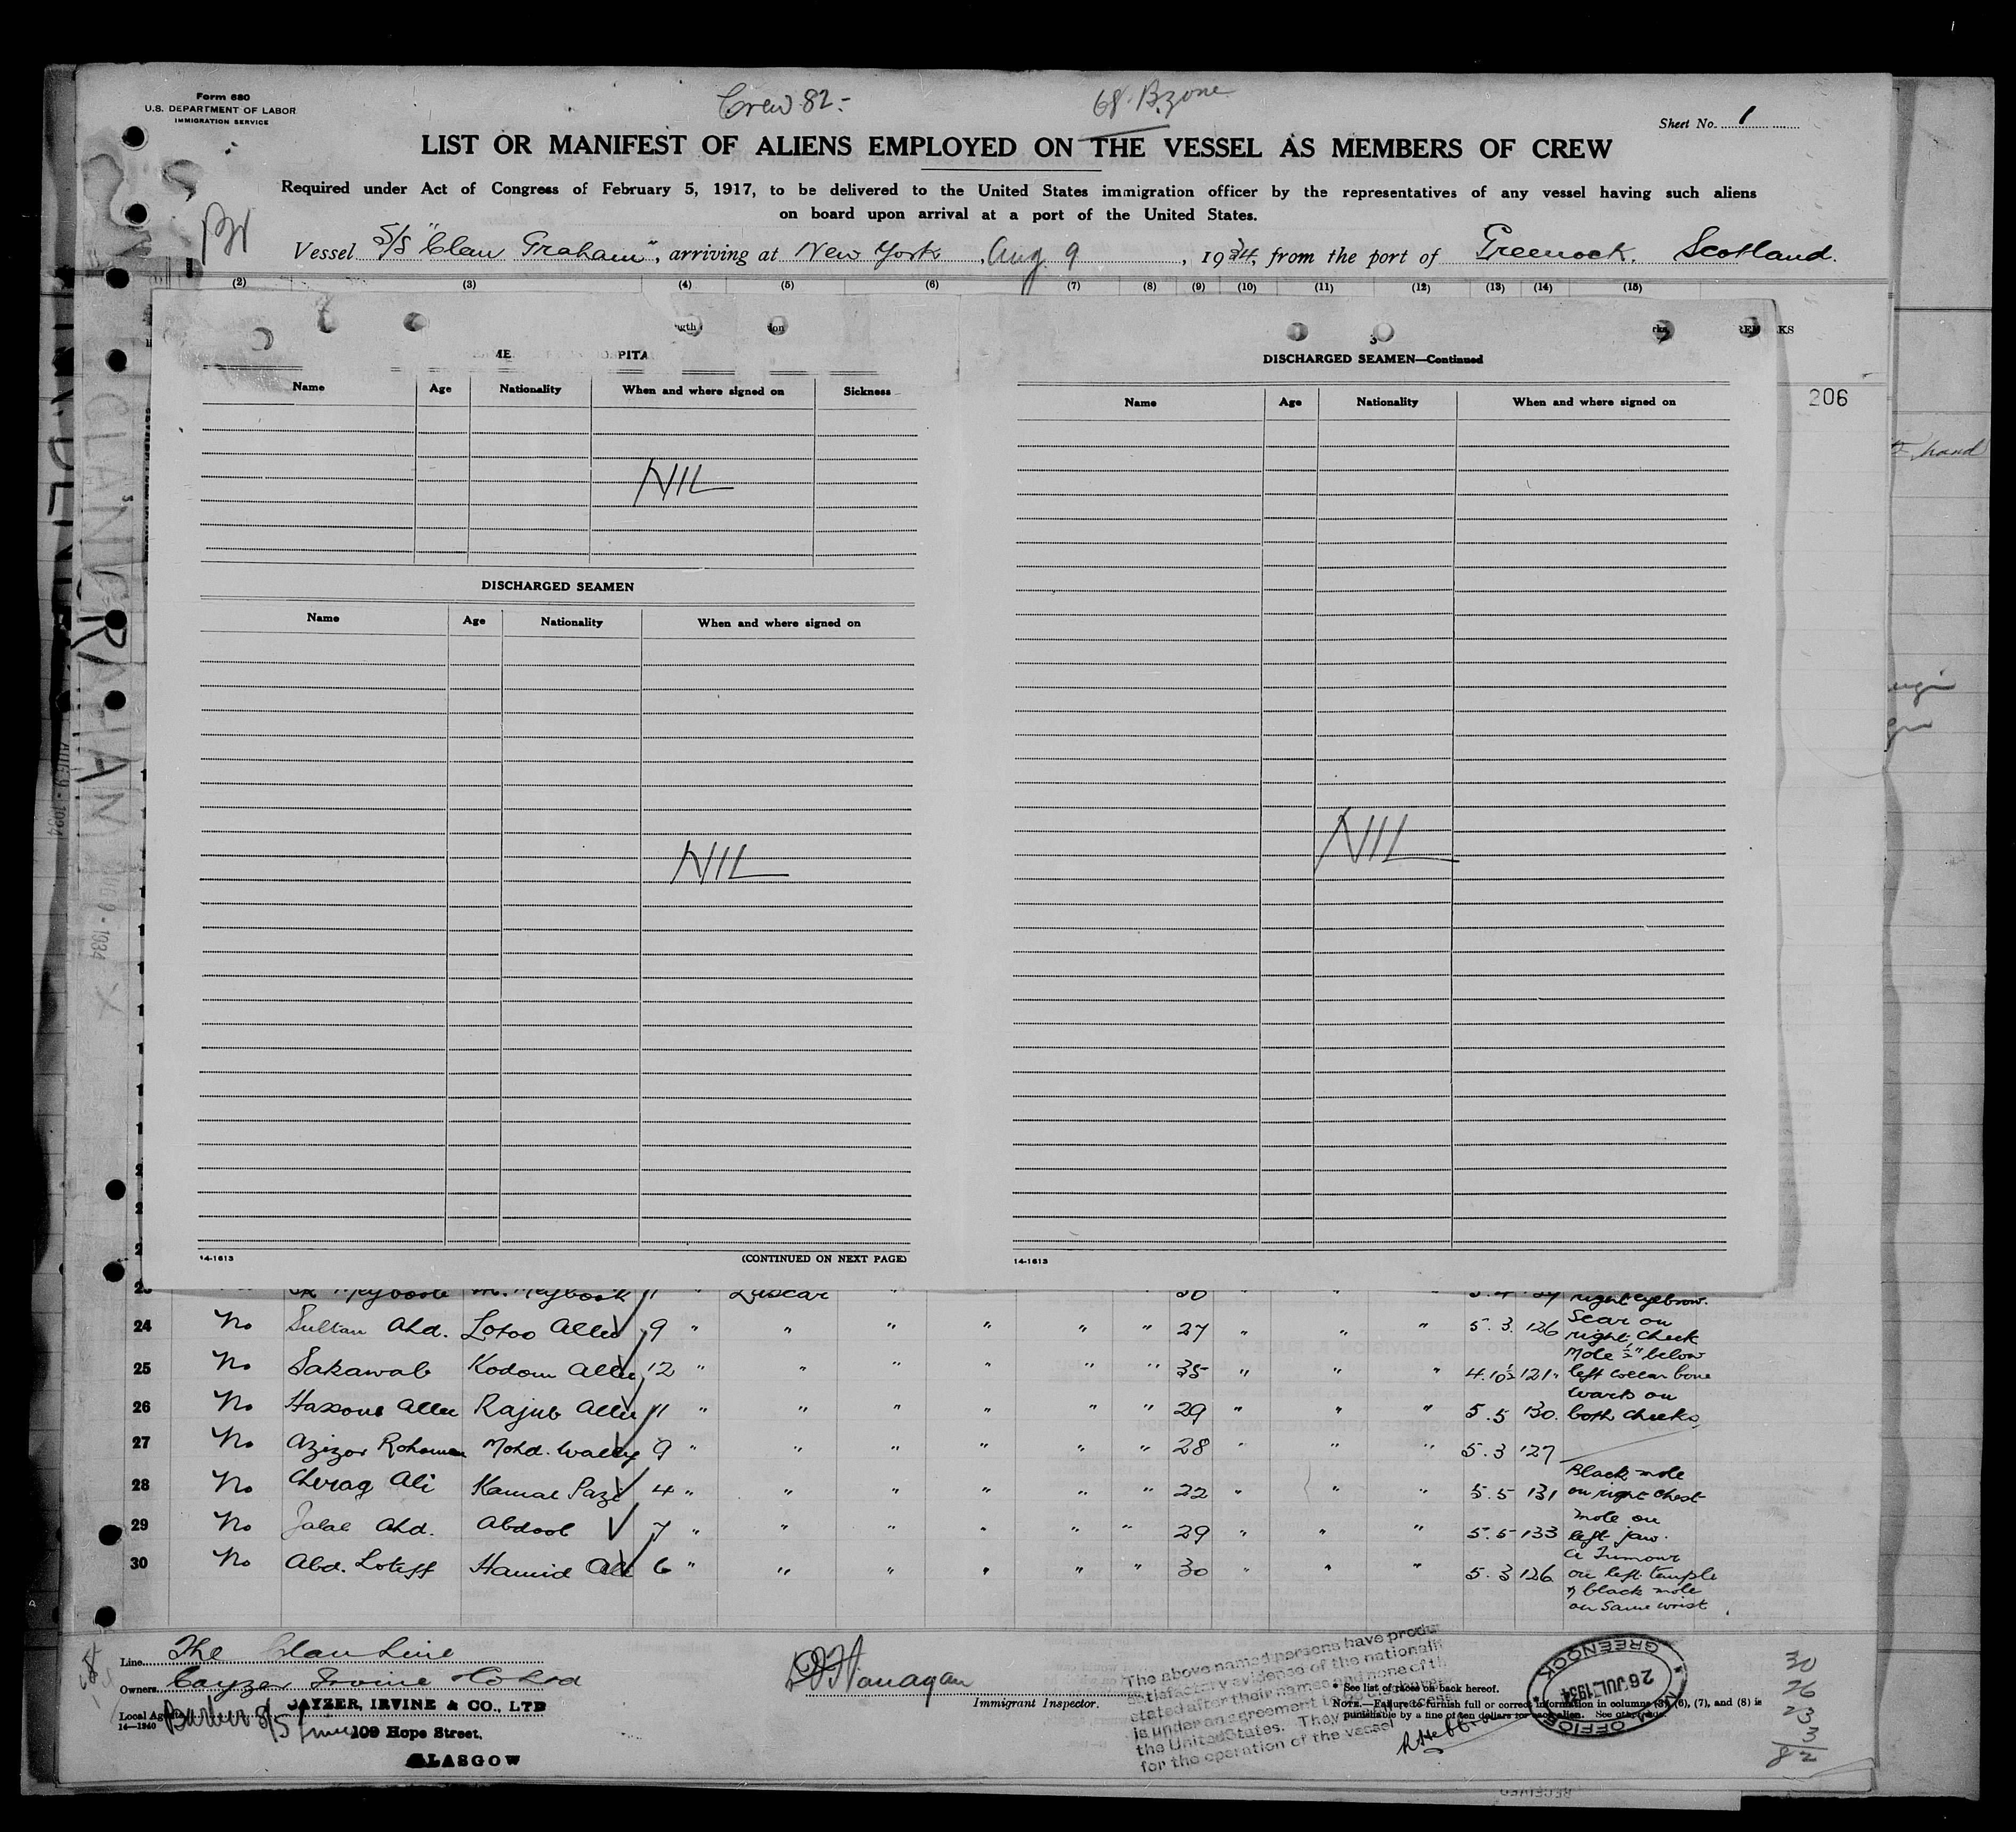 Form 680
U.S. DEPARTMENT OF LABOR
IMMIGRATION SERVICE
Crew 82:-
68
Sheet No. 1
LIST OR MANIFEST OF ALIENS EMPLOYED ON THE VESSEL AS MEMBERS OF CREW
Required under Act of Congress of February 5, 1917, to be delivered to the United States immigration officer by the representatives of any vessel having such aliens
on board upon arrival at a port of the United States.
Vessel S/S "Clan Graham", arriving at New York, Aug 9, 1934, from the port of Greenock. Scotland.
(2) (3) (4) (5) (6) (7) (8) (9) (10) (11) (12) (13) (14) (15)
Name Age Nationality When and where signed on Sickness
NIL
DISCHARGED SEAMEN
Name Age Nationality When and where signed on
NIL
14-1613 (CONTINUED ON NEXT PAGE)
3
DISCHARGED SEAMEN—Continued
Name Age Nationality When and where signed on
NIL
14-1613
206
CLAN GRAHAM
AUG 9 - 1934
right eyebrow.
24 No Sultan Ahd. Lotoo Allee 9 " " " " " " 27 " " " 5.3. 126 Scar on right cheek
25 No Sakawab Kodom Allee 12 " " " " " " 35 " " " 4.10½ 121 Mole ½" below left collar bone
26 No Hassone Allee Rajub Allee 11 " " " " " " 29 " " " 5.5 130. Warts on both cheeks
27 No Azizor Rohoman Mohd. Wally 9 " " " " " " 28 " " " 5.3 127
28 No Cherag Ali Kamal Gazi 4 " " " " " " 22 " " " 5.5 131 Black mole on right chest
29 No Jalal Ahd. Abdool 7 " " " " " " 29 " " " 5.5 133 Mole on left jaw.
30 No Abd. Loteff Hamid Ali 6 " " " " " " 30 " " " 5.3 126 A Tumour on left temple & black mole on same wrist
Line The Clan Line
Owners Cayzer Irvine & Co Ltd
Local Agents
14-1240
CAYZER, IRVINE & CO., LTD
109 Hope Street.
GLASGOW
Immigrant Inspector.
The above named persons have produ
satisfactory evidence of the nationali
stated after their names and none of th
is under an agreement to
the United States. They
for the operation of the vessel
* See list of races on back hereof.
NOTE.—Failure to furnish full or correct information in columns (3), (6), (7), and (8) is
punishable by a fine of ten dollars for each alien. See other side.
GREENOCK
26 JUL 1934
OFFICE
30
26
23
3
82
RECEIVED